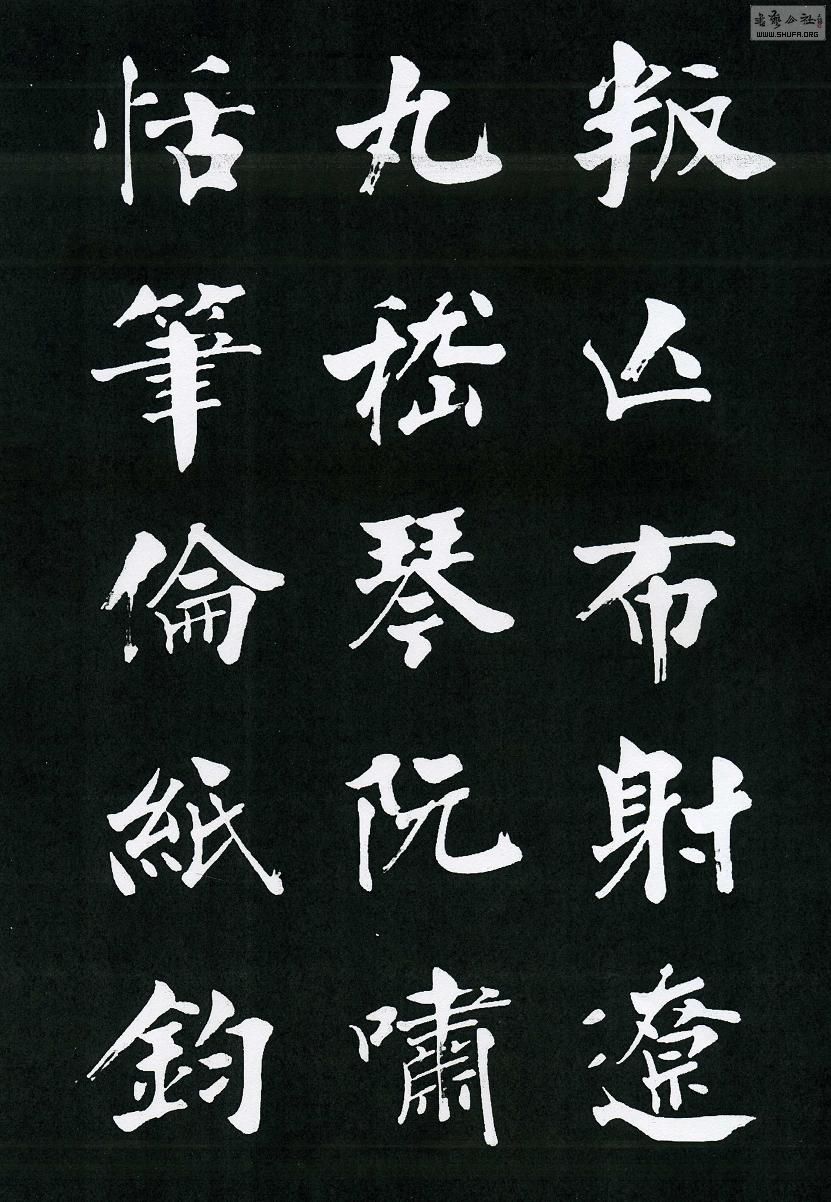 叛亾布射遼
丸嵇琴阮嘯
恬筆倫紙鈞
書藝公社
WWW.SHUFA.ORG